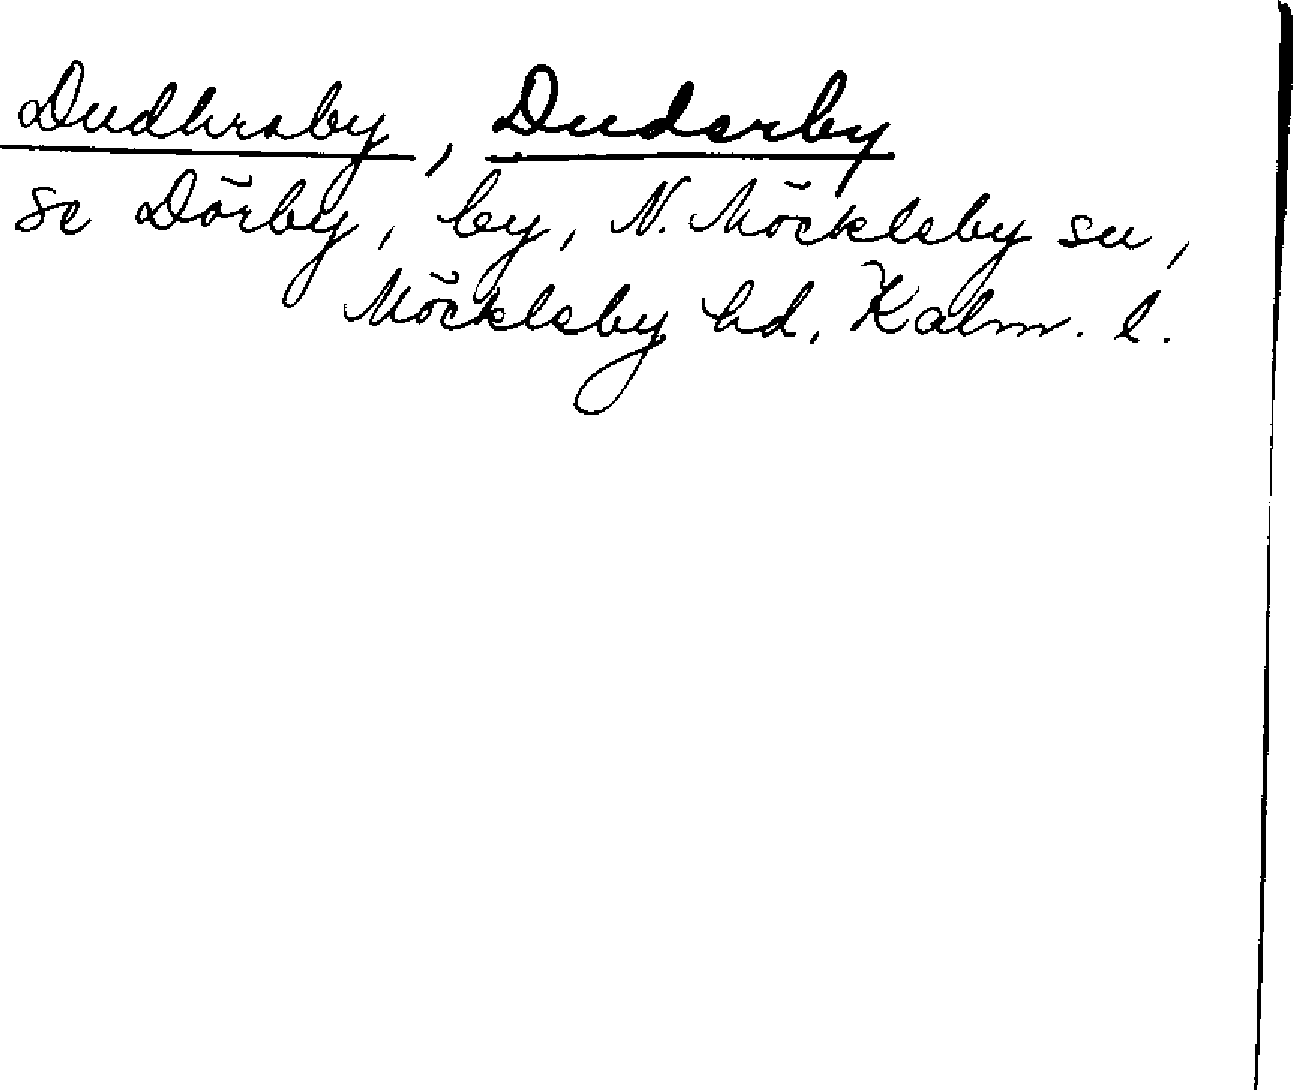 Dudhraby, Duderby
se Dörby, by, N. Möckleby sn,
Möckleby hd, Kalm. l.